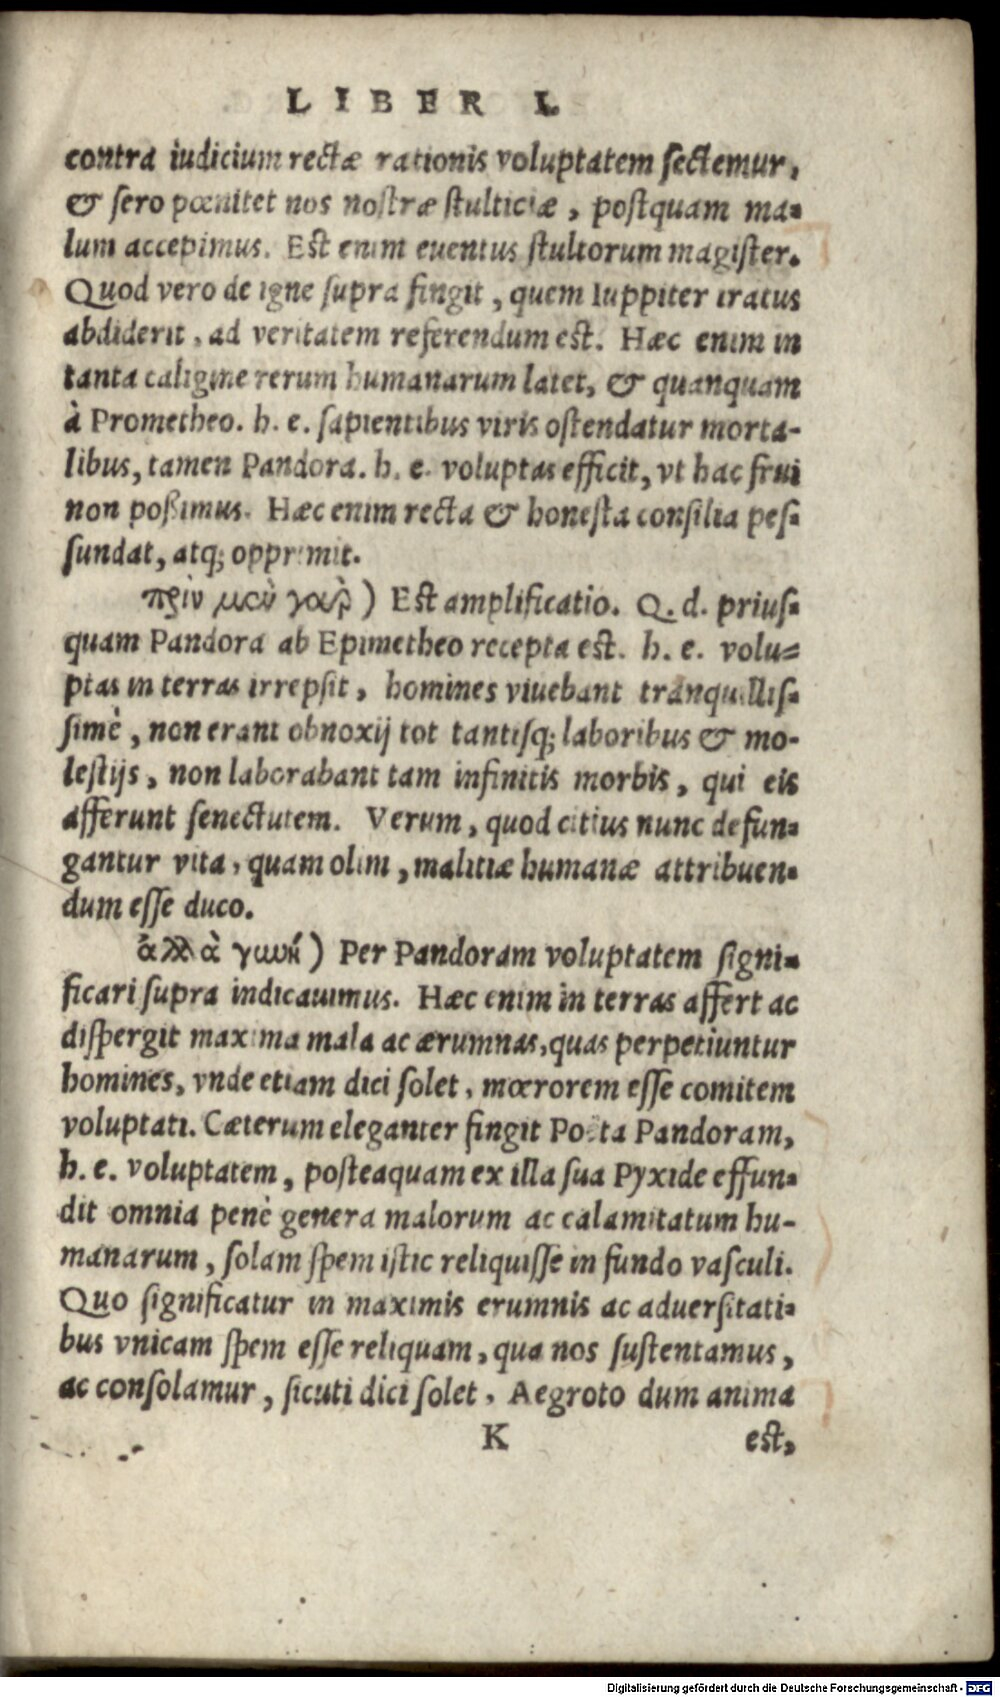 LIBER I.
contra iudicium rectæ rationis voluptatem sectemur,
& sero pœnitet nos nostræ stulticiæ, postquam ma-
lum accepimus. Est enim euentus stultorum magister.
Quod vero de igne supra fingit, quem Iuppiter iratus
abdiderit, ad veritatem referendum est. Hæc enim in
tanta caligine rerum humanarum latet, & quanquam
à Prometheo. h. e. sapientibus viris ostendatur morta-
libus, tamen Pandora. h. e. voluptas efficit, vt hac frui
non poßimus. Hæc enim recta & honesta consilia pes-
sundat, atq; opprimit.
πρὶν μὲν γὰρ) Est amplificatio. Q. d. prius-
quam Pandora ab Epimetheo recepta est. h. e. volu-
ptas in terras irrepsit, homines viuebant tranquillis-
simè, non erant obnoxij tot tantisq; laboribus & mo-
lestijs, non laborabant tam infinitis morbis, qui eis
afferunt senectutem. Verum, quod citius nunc defun-
gantur vita, quam olim, malitiæ humanæ attribuen-
dum esse duco.
ἀλλὰ γυνὴ) Per Pandoram voluptatem signi-
ficari supra indicauimus. Hæc enim in terras affert ac
dispergit maxima mala ac ærumnas, quas perpetiuntur
homines, vnde etiam dici solet, mœrorem esse comitem
voluptati. Cæterum eleganter fingit Poëta Pandoram,
h. e. voluptatem, posteaquam ex illa sua Pyxide effun-
dit omnia penè genera malorum ac calamitatum hu-
manarum, solam spem istic reliquisse in fundo vasculi.
Quo significatur in maximis erumnis ac aduersitati-
bus vnicam spem esse reliquam, qua nos sustentamus,
ac consolamur, sicuti dici solet, Aegroto dum anima
K est,
Digitalisierung gefördert durch die Deutsche Forschungsgemeinschaft - DFG